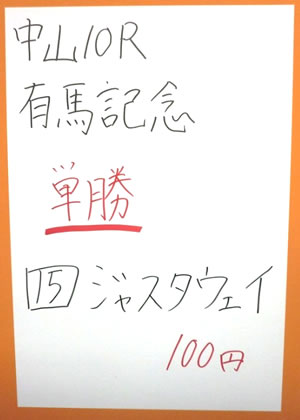 中山10R
有馬記念
単勝
15 ジャスタウェイ
100円